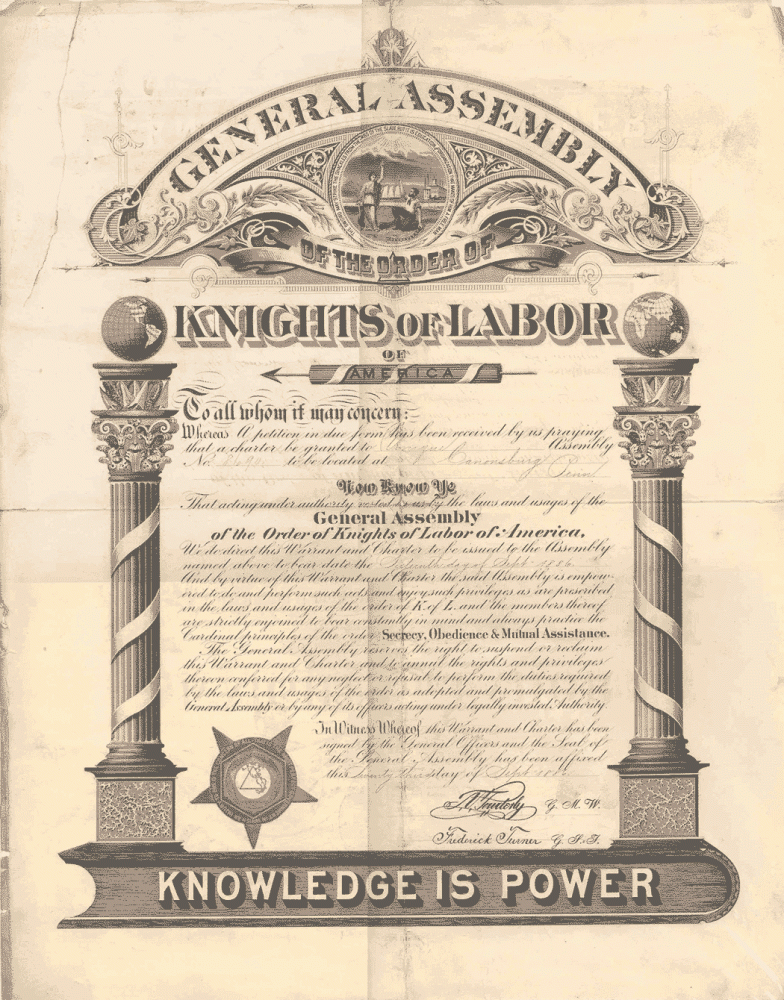 GENERAL ASSEMBLY
OF THE ORDER OF
KNIGHTS OF LABOR
OF
AMERICA
To all whom it may concern:
Whereas A petition in due form has been received by us praying
that a charter be granted to Assembly
No. to be located at Canonsburg Penn
Now Know Ye
That acting under authority vested in us by the laws and usages of the
General Assembly
of the Order of Knights of Labor of America,
We do direct this Warrant and Charter to be issued to the Assembly
named above to bear date the day of Sept 1886
And by virtue of this Warrant and Charter the said Assembly is empow-
ered to do and perform such acts and enjoy such privileges as are prescribed
in the laws and usages of the order of K. of L. and the members thereof
are strictly enjoined to bear constantly in mind and always practice the
Cardinal principles of the order Secrecy, Obedience & Mutual Assistance.
The General Assembly reserves the right to suspend or reclaim
this Warrant and Charter and to annul the rights and privileges
thereon conferred for any neglect or refusal to perform the duties required
by the laws and usages of the order as adopted and promulgated by the
General Assembly or by any of its officers acting under legally invested Authority.
In Witness Whereof this Warrant and Charter has been
signed by the General Officers and the Seal of
the General Assembly has been affixed
this day of Sept
T. V. Powderly G. M. W.
Frederick Turner G. S.-T.
KNOWLEDGE IS POWER